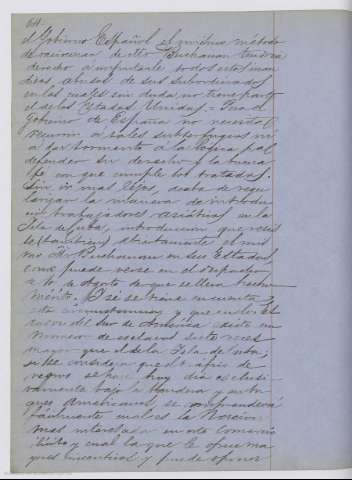 64
el Gobierno Español el mismo método
de raciocinar de Mr Buchanan tendria
derecho á imputarle todos estos
abusos de sus subordinados
en los cuales sin duda no tiene parte
el de los Estados Unidos. Pero el
Gobierno de España no necesita
recurrir á tales subterfugios ni
á dar tormento á la lógica para
defender su derecho y la buena
fe con que cumple los tratados.
Sin ir mas lejos, acaba de regu
larizar la manera de introdu
cir trabajadores asiáticos en la
Isla de Cuba, introduccion que
abiertamente el mis
mo Mr Buchanan en sus Estados
como puede verse en el despacho
de Agosto de que se lleva hecho
mérito. Y si se tiene en cuenta
esta circunstancia y que en los Es
tados del Sur de America existe un
número de esclavos siete veces
mayor que el de la Isla de Cuba;
si se considera que el tráfico de
negros se hace hoy dia esclusi
vamente bajo la bandera y
buques Americanos, se comprenderá
fácilmente cual es la Nacion
mas interesada en este comercio
ilícito y cual la que le ofrece ma
yores y puede